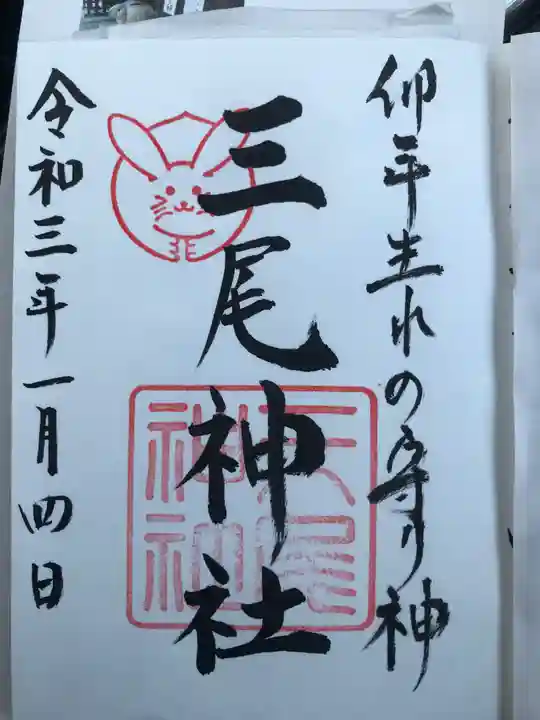 卯年生れの守り神
三尾神社
令和三年一月四日